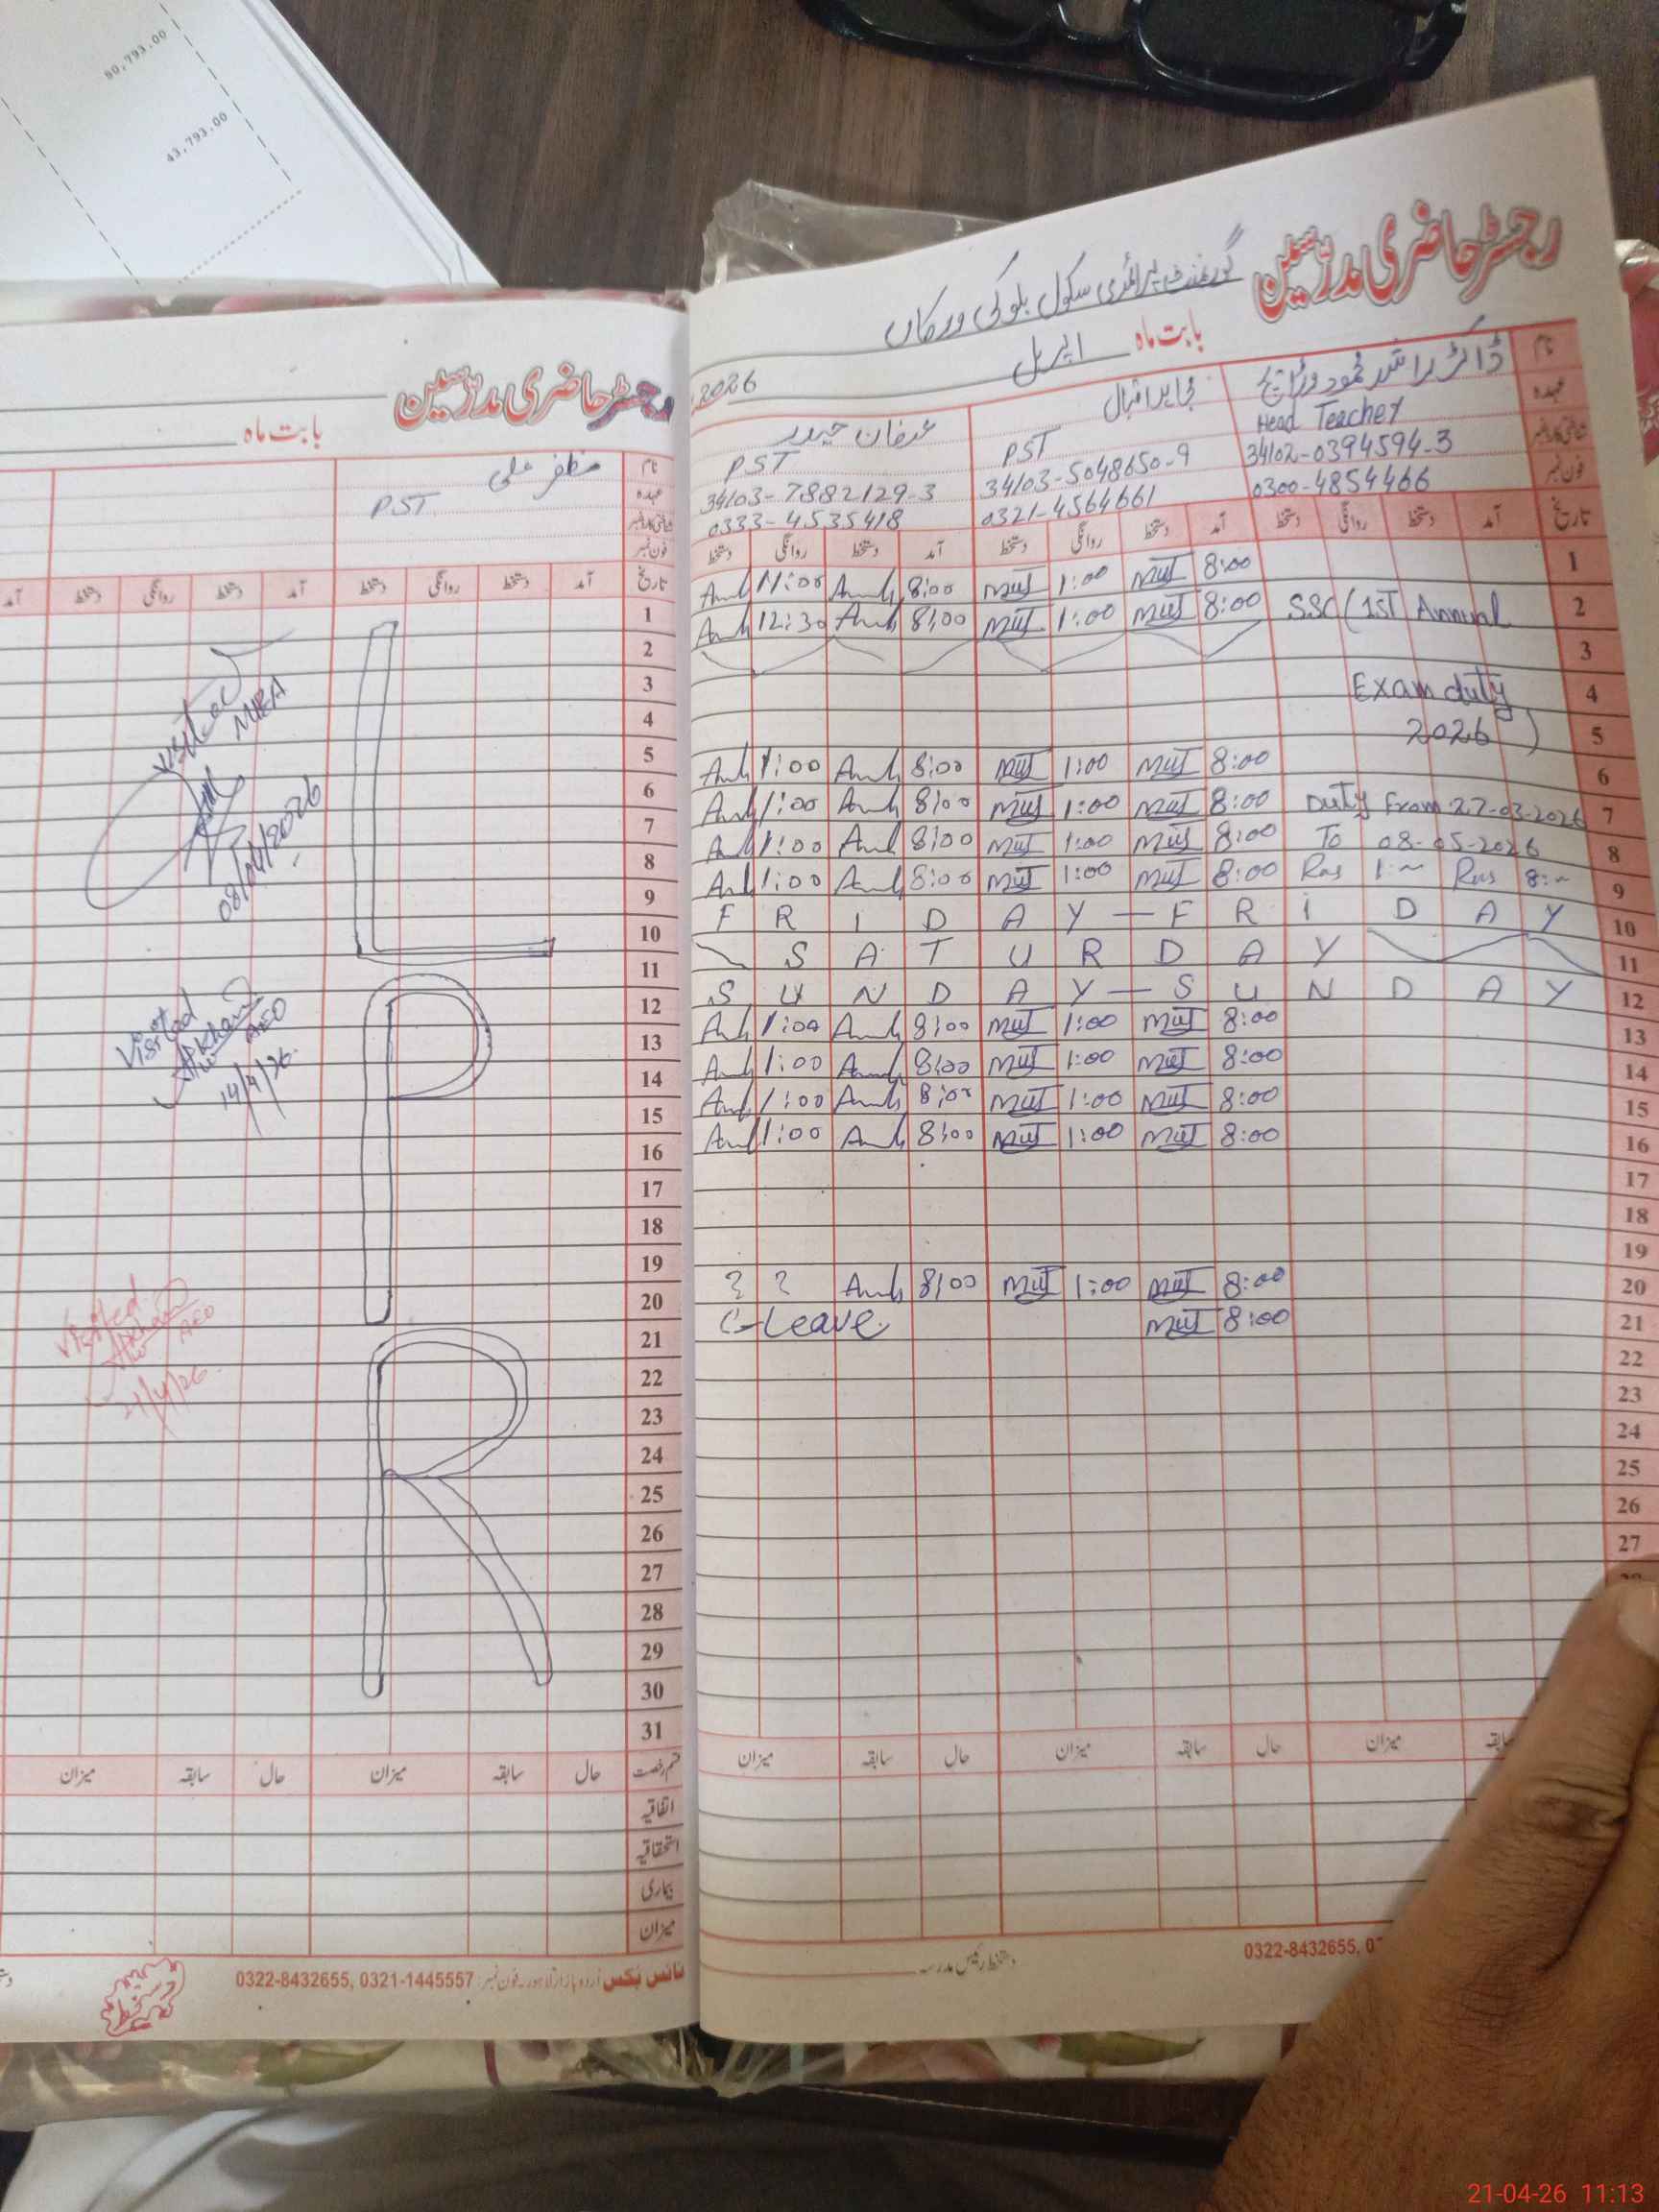 50,793.00
43,793.00
رجسٹر حاضری مدرسین
گورنمنٹ پرائمری سکول بلوکی ورکاں
بابت ماہ اپریل 2026
نام ڈاکٹر راشد محمود وڑائچ مجاہد اقبال عرفان حیدر
عہدہ Head Teacher PST PST
شناختی کارڈ نمبر 34102-0394594-3 34103-5048650-9 34103-7882129-3
فون نمبر 0300-4854466 0321-4564661 0333-4535418
تاریخ آمد دستخط روانگی دستخط آمد دستخط روانگی دستخط آمد دستخط روانگی دستخط
1 8:00 1:00 8:00 11:00
2 SSC (1ST Annual 8:00 1:00 8:00 12:30
3
4 Exam duty
5 2026)
6 8:00 1:00 8:00 1:00
7 Duty Exam 27-03-2026 8:00 1:00 8:00 1:00
8 To 08-05-2026 8:00 1:00 8:00 1:00
9 8:00 1:00 8:00 1:00
10 FRIDAY — FRIDAY
11 SATURDAY
12 SUNDAY — SUNDAY
13 8:00 1:00 8:00 1:00
14 8:00 1:00 8:00 1:00
15 8:00 1:00 8:00 1:00
16 8:00 1:00 8:00 1:00
17
18
19
20 8:00 1:00 8:00 ? ?
21 8:00 C-Leave
22
23
24
25
26
27
حال سابقہ میزان حال سابقہ میزان
دستخط رئیس مدرسہ
0322-8432655, 0
رجسٹر حاضری مدرسین
بابت ماہ
نام مظفر علی
عہدہ PST
شناختی کارڈ نمبر
فون نمبر
تاریخ آمد دستخط روانگی دستخط آمد دستخط روانگی دستخط آمد
1
2
3
4
5
6
7
8
9
10
11
12
13
14
15
16
17
18
19
20
21
22
23
24
25
26
27
28
29
30
31
L
P
R
Visited
MEA
08/04/2026
Visited
AEO
14/4/26
Visited
AEO
21/4/26
قسم رخصت حال سابقہ میزان حال سابقہ میزان
اتفاقیہ
استحقاقیہ
بیماری
میزان
نائس بکس اردو بازار لاہور۔ فون نمبر: 0322-8432655, 0321-1445557
21-04-26 11:13